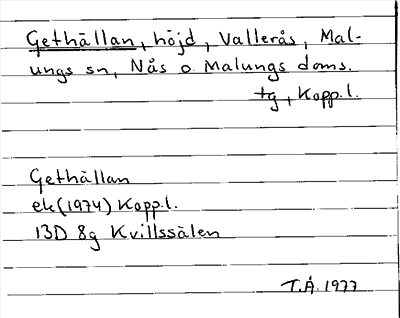 Gethällan, höjd, Vallerås, Mal-
ungs sn, Nås o. Malungs doms.
tg, Kopp.l.
Gethällan
ek(1974) Kopp.l.
13D 8g Kvillssälen
T.Å. 1977